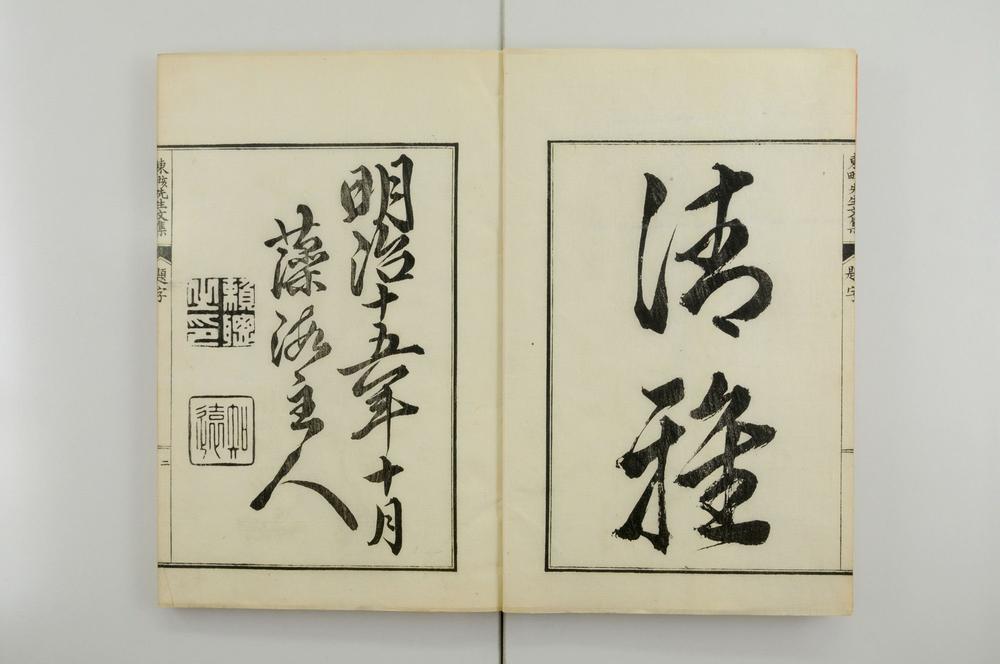 東畡先生文集
題字
清雅
明治十五年十月
藻海主人
頼聰之印
知遠
東畡先生文集
題字
二